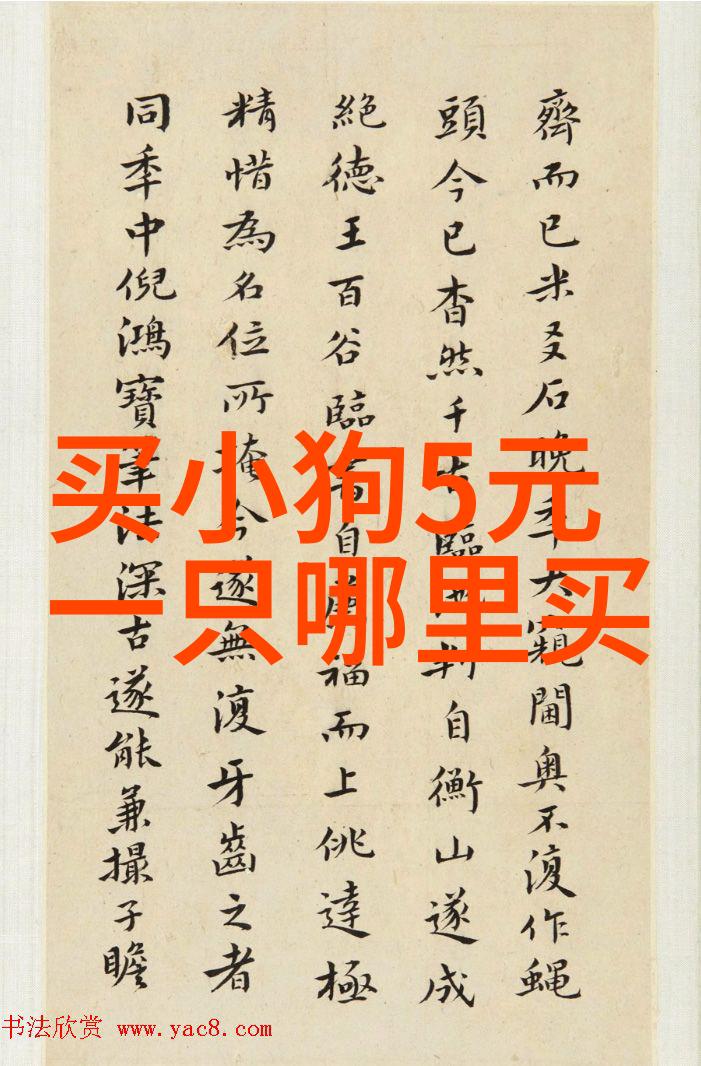 齊而已米友石晚年大窺閫奧不復作蝇
頭今已杳然千古臨自衡山遂成
絕德王百谷臨書自福而上佻達極
精惜為名位所掩今遂無復牙齒之者
同年中倪鴻寶筆法深古遂能兼撮子瞻
买小狗5元
一只哪里买
书法欣赏 www.yac8.com